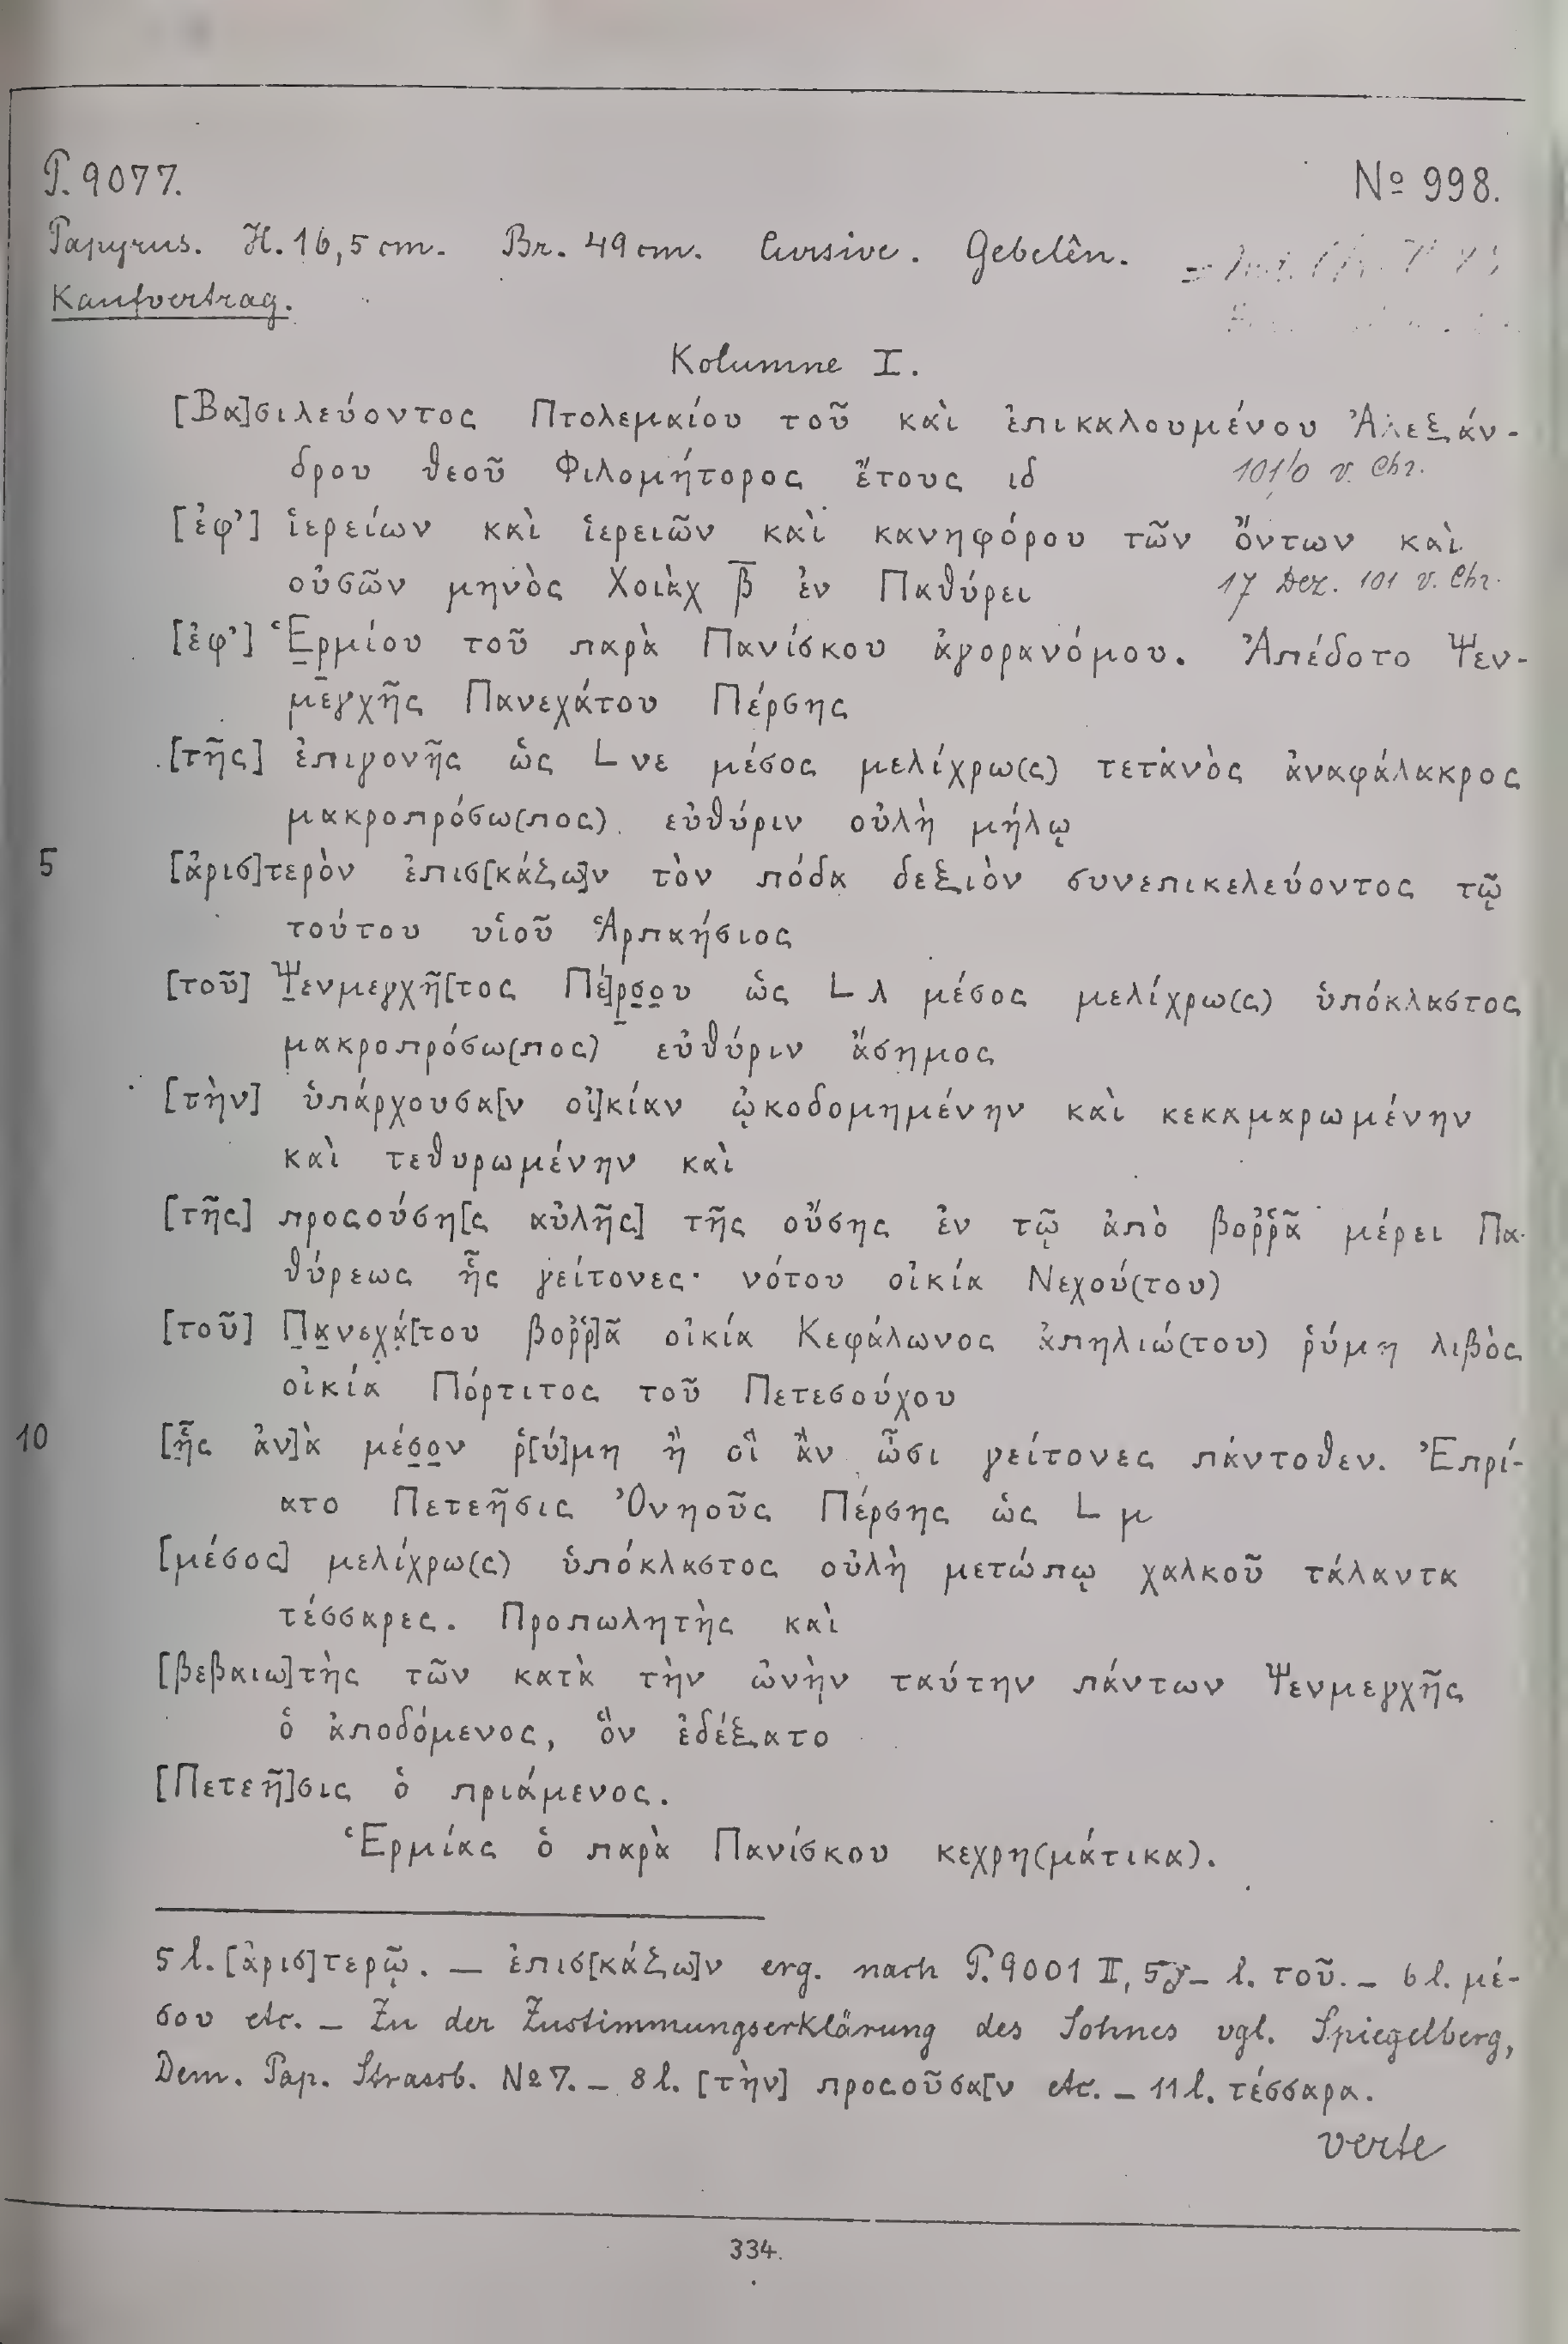 P. 9077. Nº 998.
Papyrus. H. 16,5 cm. Br. 49 cm. Cursive. Gebelên.
Kaufvertrag.
Kolumne I.
[Βα]σιλεύοντος Πτολεμαίου τοῦ καὶ ἐπικαλουμένου Ἀλεξάν-
δρου θεοῦ Φιλομήτορος ἔτους ιδ 101/0 v. Chr.
[ἐφ’] ἱερείων καὶ ἱερειῶν καὶ κανηφόρου τῶν ὄντων καὶ
οὐσῶν μηνὸς Χοιὰχ β̅ ἐν Παθύρει 17 Dez. 101 v. Chr.
[ἐφ’] Ἑρ̣μίου τοῦ παρὰ Πανίσκου ἀγορανόμου. Ἀπέδοτο Ψεν-
μεγχῆς Πανεχάτου Πέρσης
[τῆς] ἐπιγονῆς ὡς L νε μέσος μελίχρω(ς) τετανὸς ἀναφάλακρος
μακροπρόσω(πος) εὐθύριν οὐλὴ μήλῳ
5 [ἀρισ]τερὸν ἐπισ[κάζω]ν τὸν πόδα δεξιὸν συνεπικελεύοντος τῷ
τούτου υἱοῦ Ἁρπαήσιος
[τοῦ] Ψ̣ενμεγχῆ[τος Πέ]ρ̣σ̣ο̣υ ὡς L λ μέσος μελίχρω(ς) ὑπόκλαστος
μακροπρόσω(πος) εὐθύριν ἄσημος
[τὴν] ὑπάρχουσα[ν οἰ]κίαν ᾠκοδομημένην καὶ κεκαμαρωμένην
καὶ τεθυρωμένην καὶ
[τῆς] προσούση[ς αὐλῆς] τῆς οὔσης ἐν τῷ ἀπὸ βοῤῥᾶ μέρει Πα-
θύρεως ἧς γείτονες· νότου οἰκία Νεχού(του)
[τοῦ] Π̣α̣νεχά̣[του βοῤῥ]ᾶ οἰκία Κεφάλωνος ἀπηλιώ(του) ῥύμη λιβὸς
οἰκία Πόρτιτος τοῦ Πετεσούχου
10 [ἧς ἀν]ὰ μέσ̣ο̣ν ῥ[ύ]μη ἢ οἳ ἂν ὦσι γείτονες πάντοθεν. Ἐπρί-
ατο Πετεῆσις Ὀνηοῦς Πέρσης ὡς L μ
[μέσος] μελίχρω(ς) ὑπόκλαστος οὐλὴ μετώπῳ χαλκοῦ τάλαντα
τέσσαρες. Προπωλητὴς καὶ
[βεβαιω]τὴς τῶν κατὰ τὴν ὠνὴν ταύτην πάντων Ψενμεγχῆς
ὁ ἀποδόμενος, ὃν ἐδέξατο
[Πετεῆ]σις ὁ πριάμενος.
Ἑρμίας ὁ παρὰ Πανίσκου κεχρη(μάτικα).
5 l. [ἀρισ]τερῷ. — ἐπισ[κάζω]ν erg. nach P. 9001 II, 5 – l. τοῦ. – 6 l. μέ-
σου etc. – Zu der Zustimmungserklärung des Sohnes vgl. Spiegelberg,
Dem. Pap. Strassb. Nº 7. – 8 l. [τὴν] προσοῦσα[ν etc. – 11 l. τέσσαρα.
verte
334.